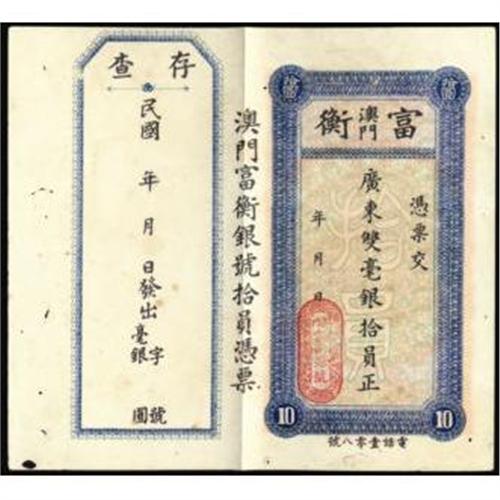 富
澳門
衡
憑票交
廣東雙毫銀拾員正
年 月 日
10
10
電話壹零八號
澳門富衡銀號拾員憑票
存查
民國 年 月 日發出毫銀 字 號 圓